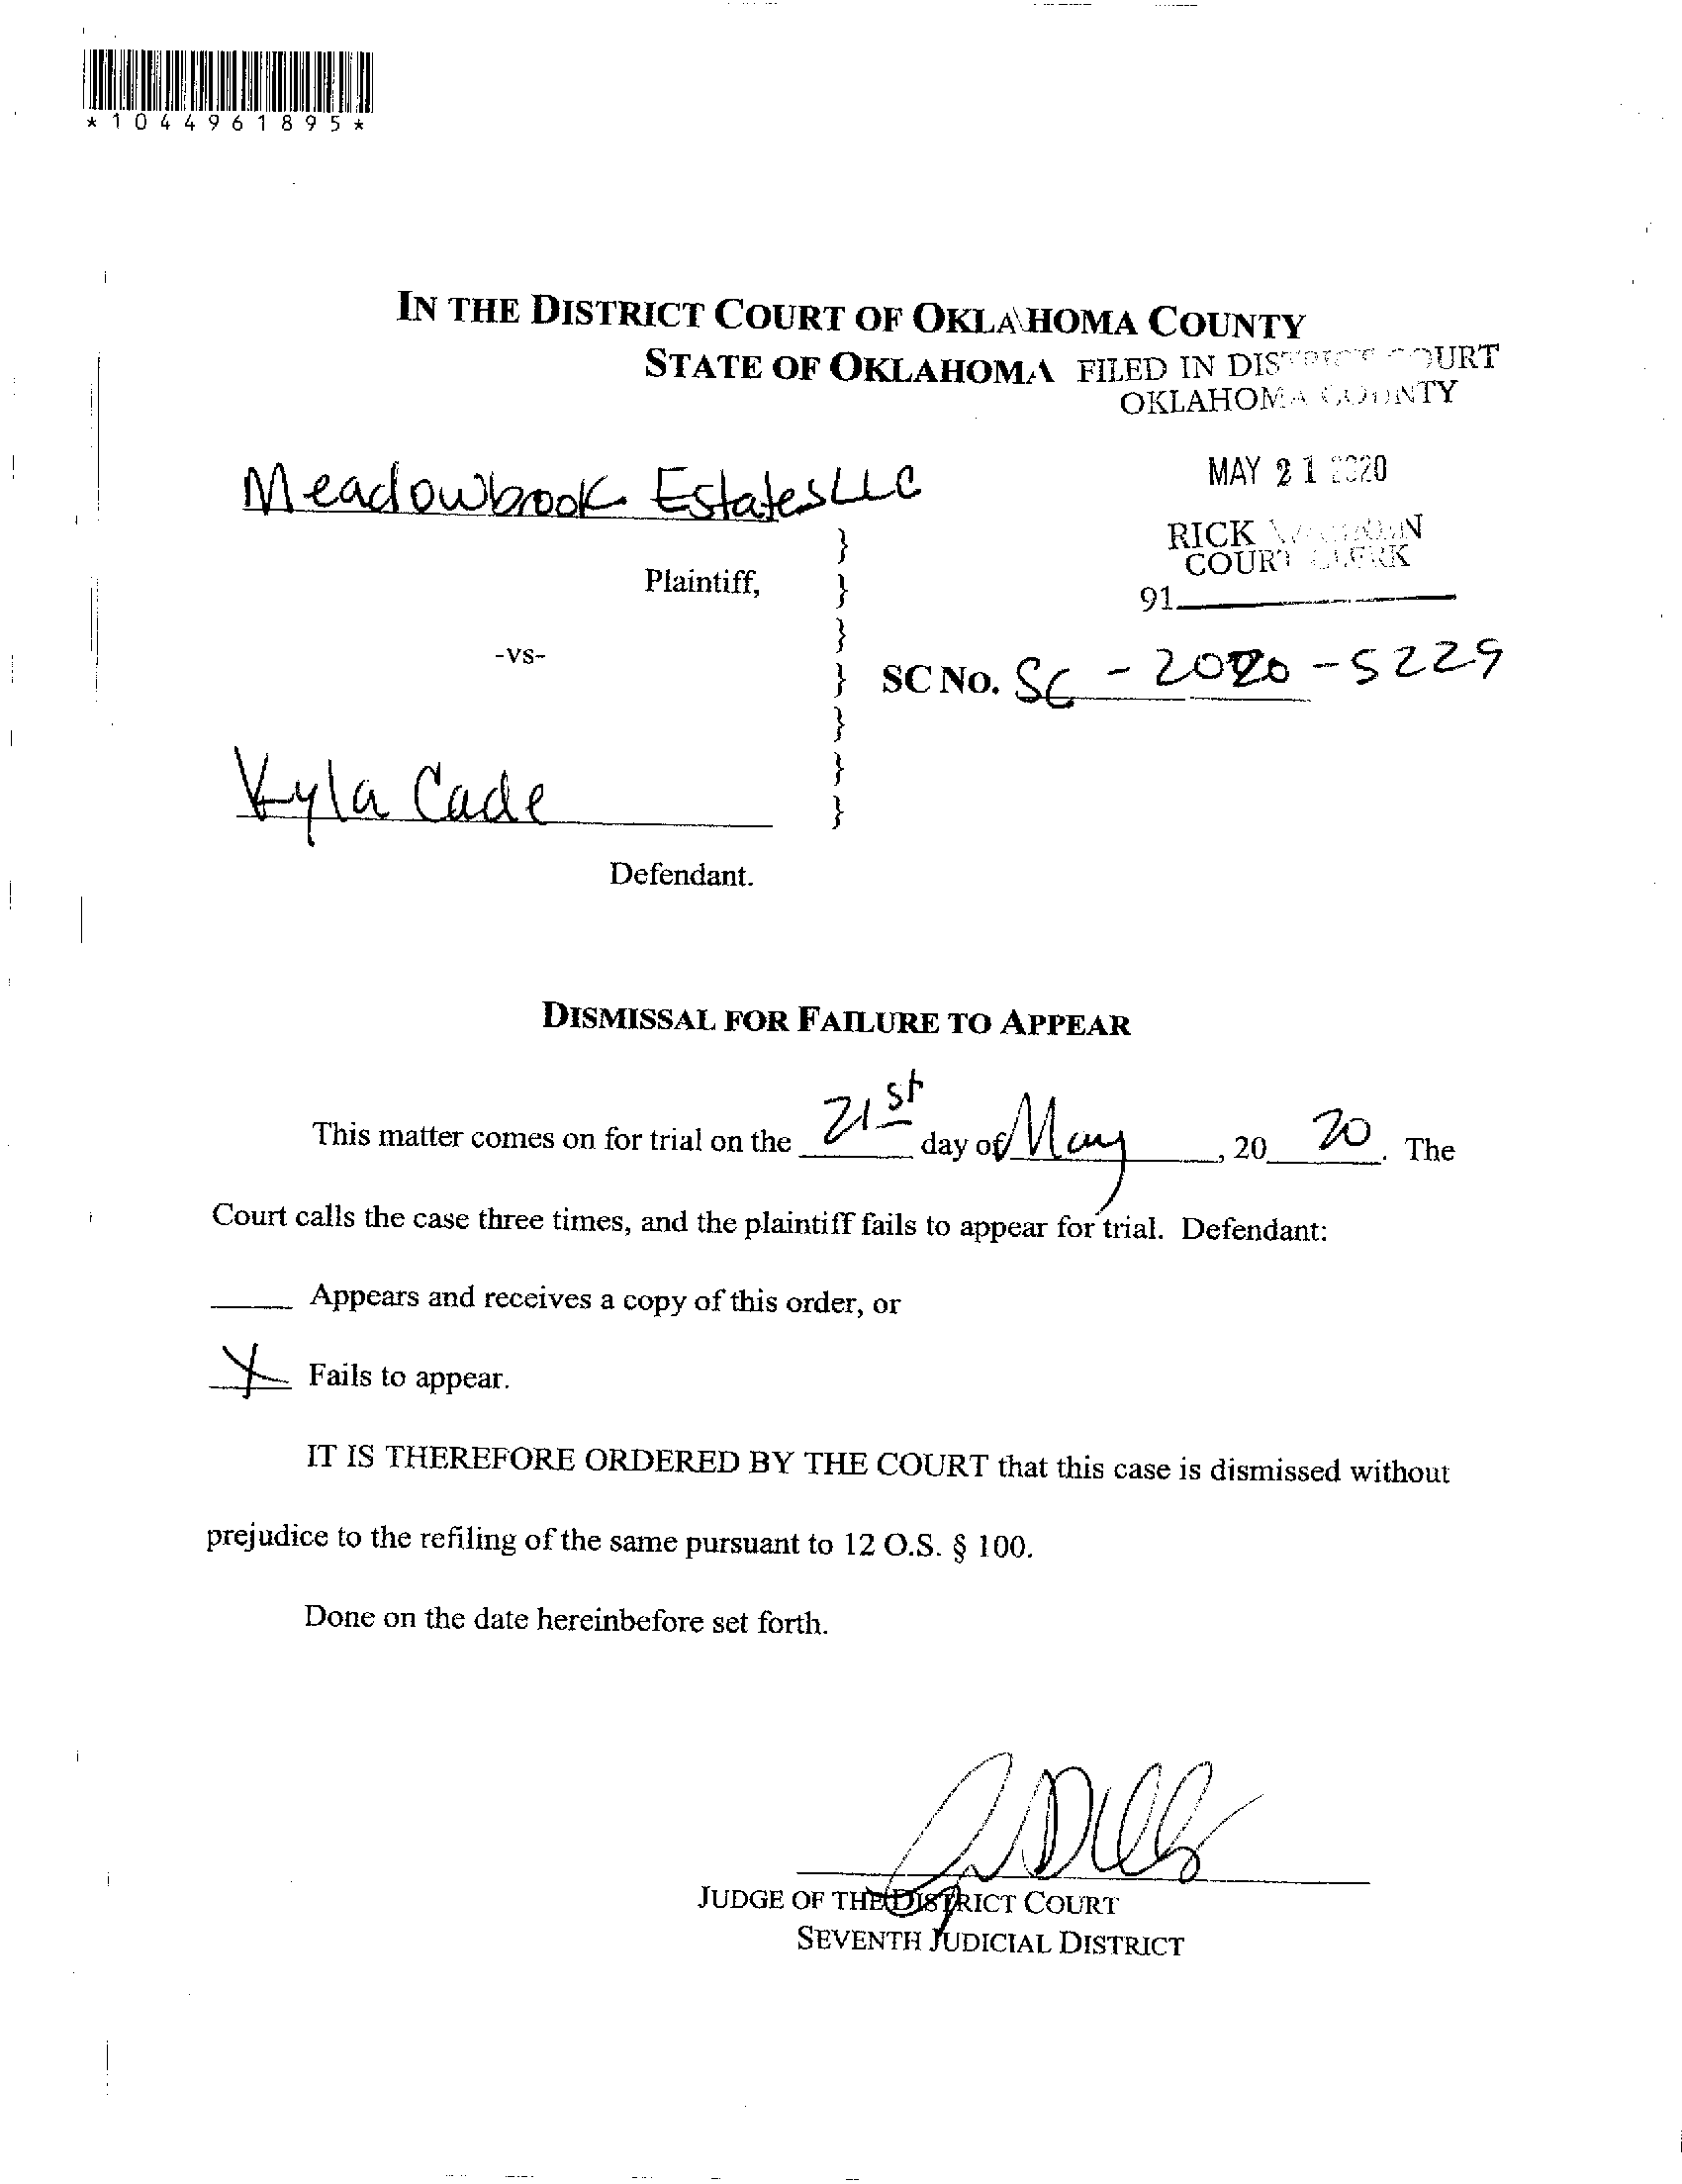 *1044961895*
IN THE DISTRICT COURT OF OKLAHOMA COUNTY
STATE OF OKLAHOMA
FILED IN DISTRICT COURT
OKLAHOMA COUNTY
MAY 21 2020
RICK
COURT CLERK
91
Meadowbrook Estates LLC
}
Plaintiff, }
}
-vs-
} SC No. SC-2020-5229
}
}
Kyla Cade }
Defendant.
DISMISSAL FOR FAILURE TO APPEAR
This matter comes on for trial on the 21st day of May, 2020. The
Court calls the case three times, and the plaintiff fails to appear for trial. Defendant:
____ Appears and receives a copy of this order, or
X Fails to appear.
IT IS THEREFORE ORDERED BY THE COURT that this case is dismissed without
prejudice to the refiling of the same pursuant to 12 O.S. § 100.
Done on the date hereinbefore set forth.
JUDGE OF THE DISTRICT COURT
SEVENTH JUDICIAL DISTRICT